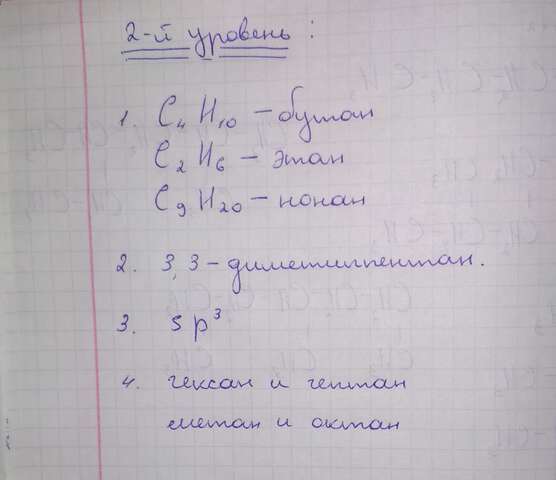 2-й уровень:
1. C₄H₁₀ – бутан
C₂H₆ – этан
C₉H₂₀ – нонан
2. 3,3-диметилпентан.
3. sp³
4. гексан и гептан
метан и октан